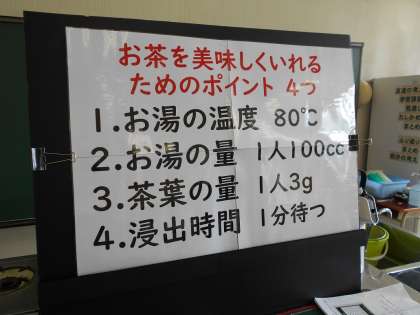 お茶を美味しくいれる
ためのポイント 4つ
1.お湯の温度 80℃
2.お湯の量 1人100cc
3.茶葉の量 1人3g
4.浸出時間 1分待つ